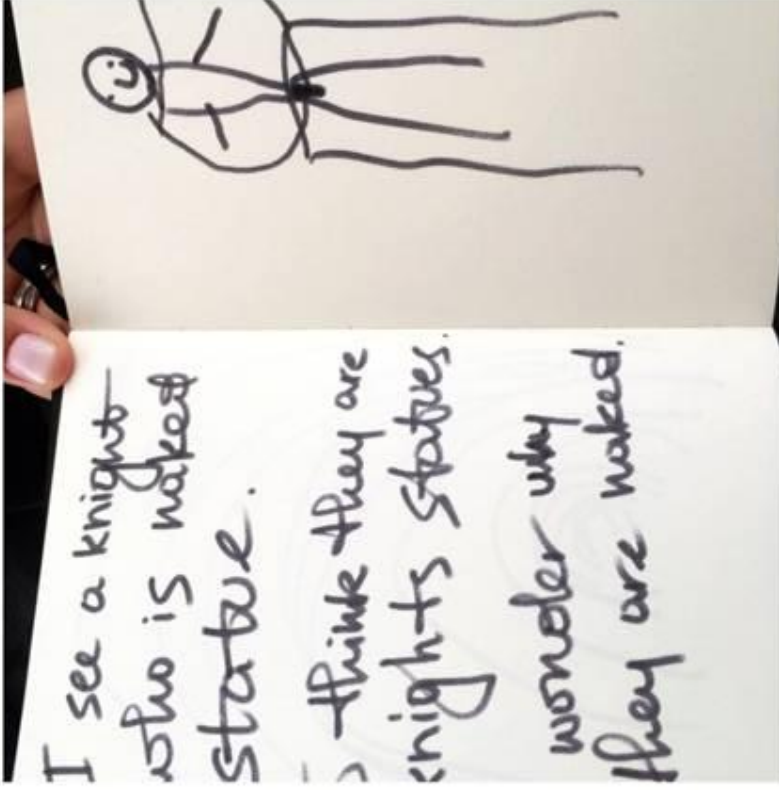 I see a knight
who is naked
statue.
think they are
knights statues.
wonder why
they are naked.